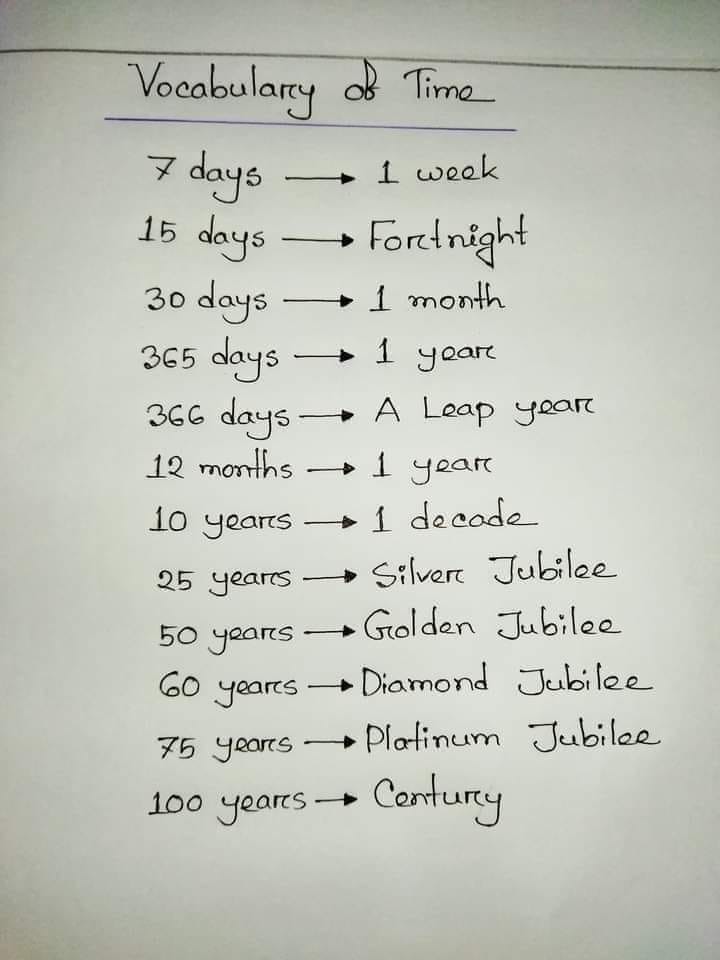 Vocabulary of Time
7 days → 1 week
15 days → Fortnight
30 days → 1 month
365 days → 1 year
366 days → A Leap year
12 months → 1 year
10 years → 1 decade
25 years → Silver Jubilee
50 years → Golden Jubilee
60 years → Diamond Jubilee
75 years → Platinum Jubilee
100 years → Century